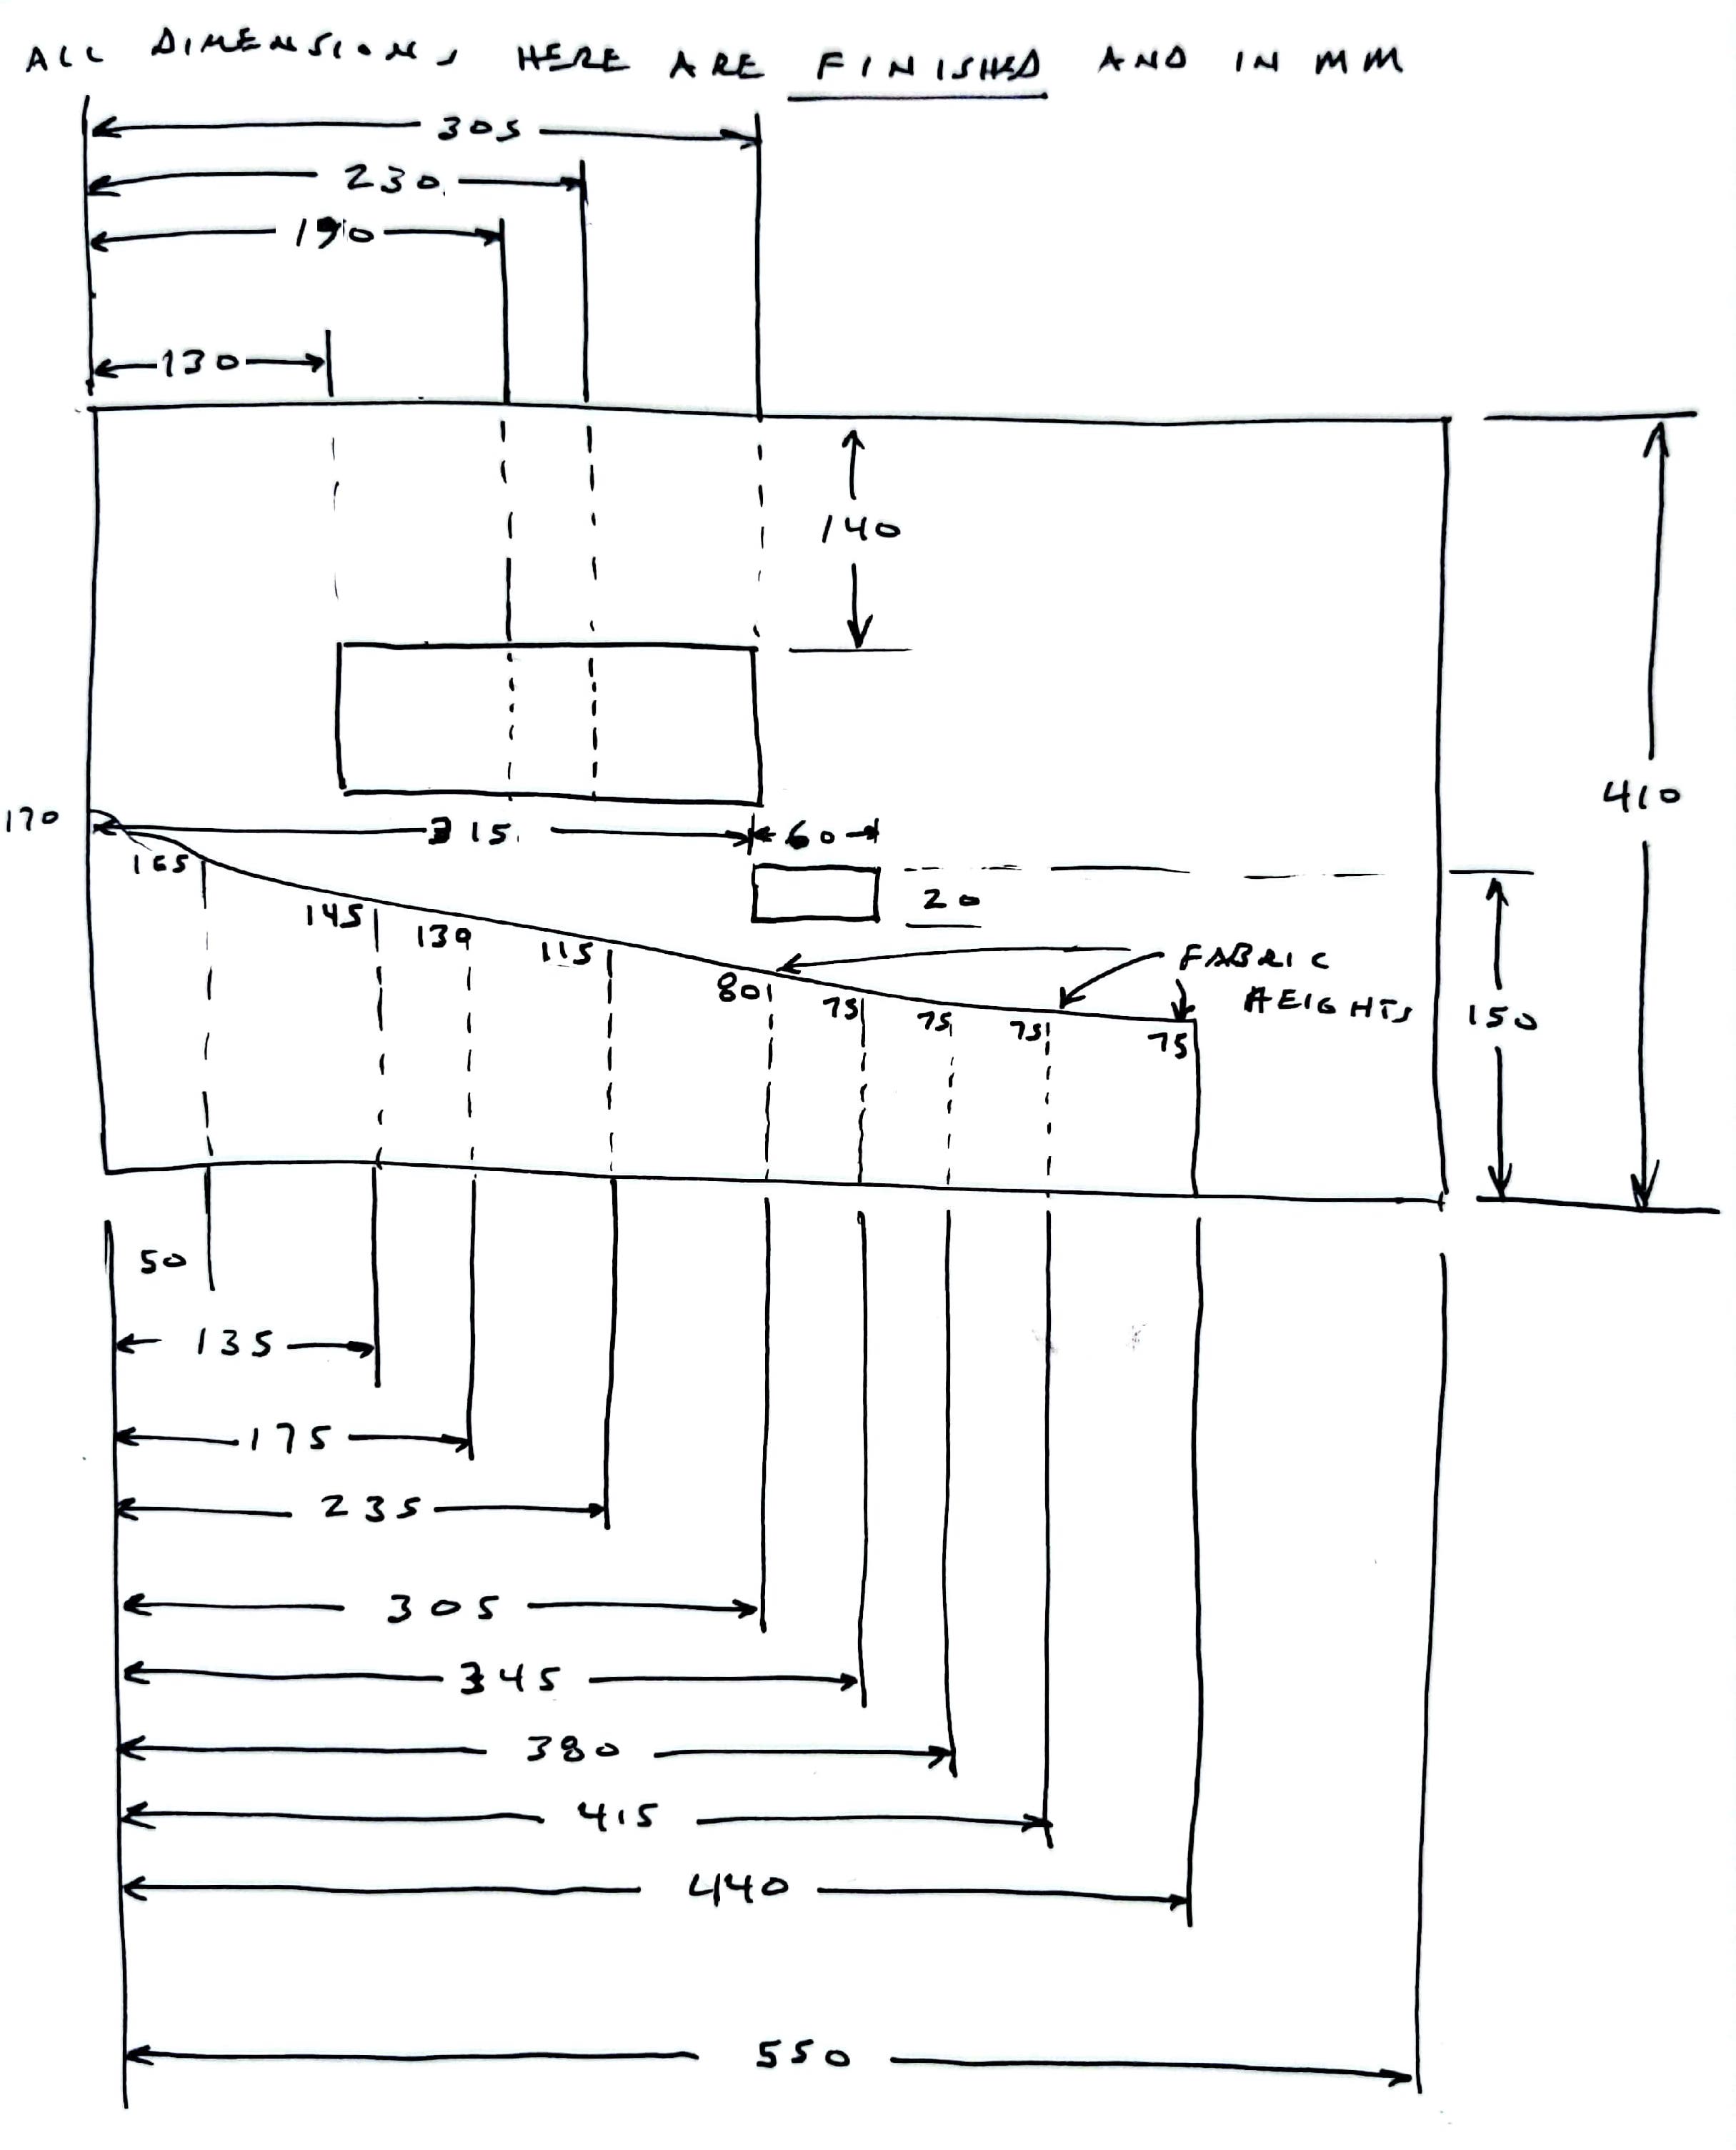 ALL DIMENSIONS HERE ARE FINISHED AND IN MM
305
230
190
130
140
410
170
315
60
165
20
145
130
115
FABRIC
HEIGHTS
80
75
75
75
75
150
50
135
175
235
305
345
380
415
440
550